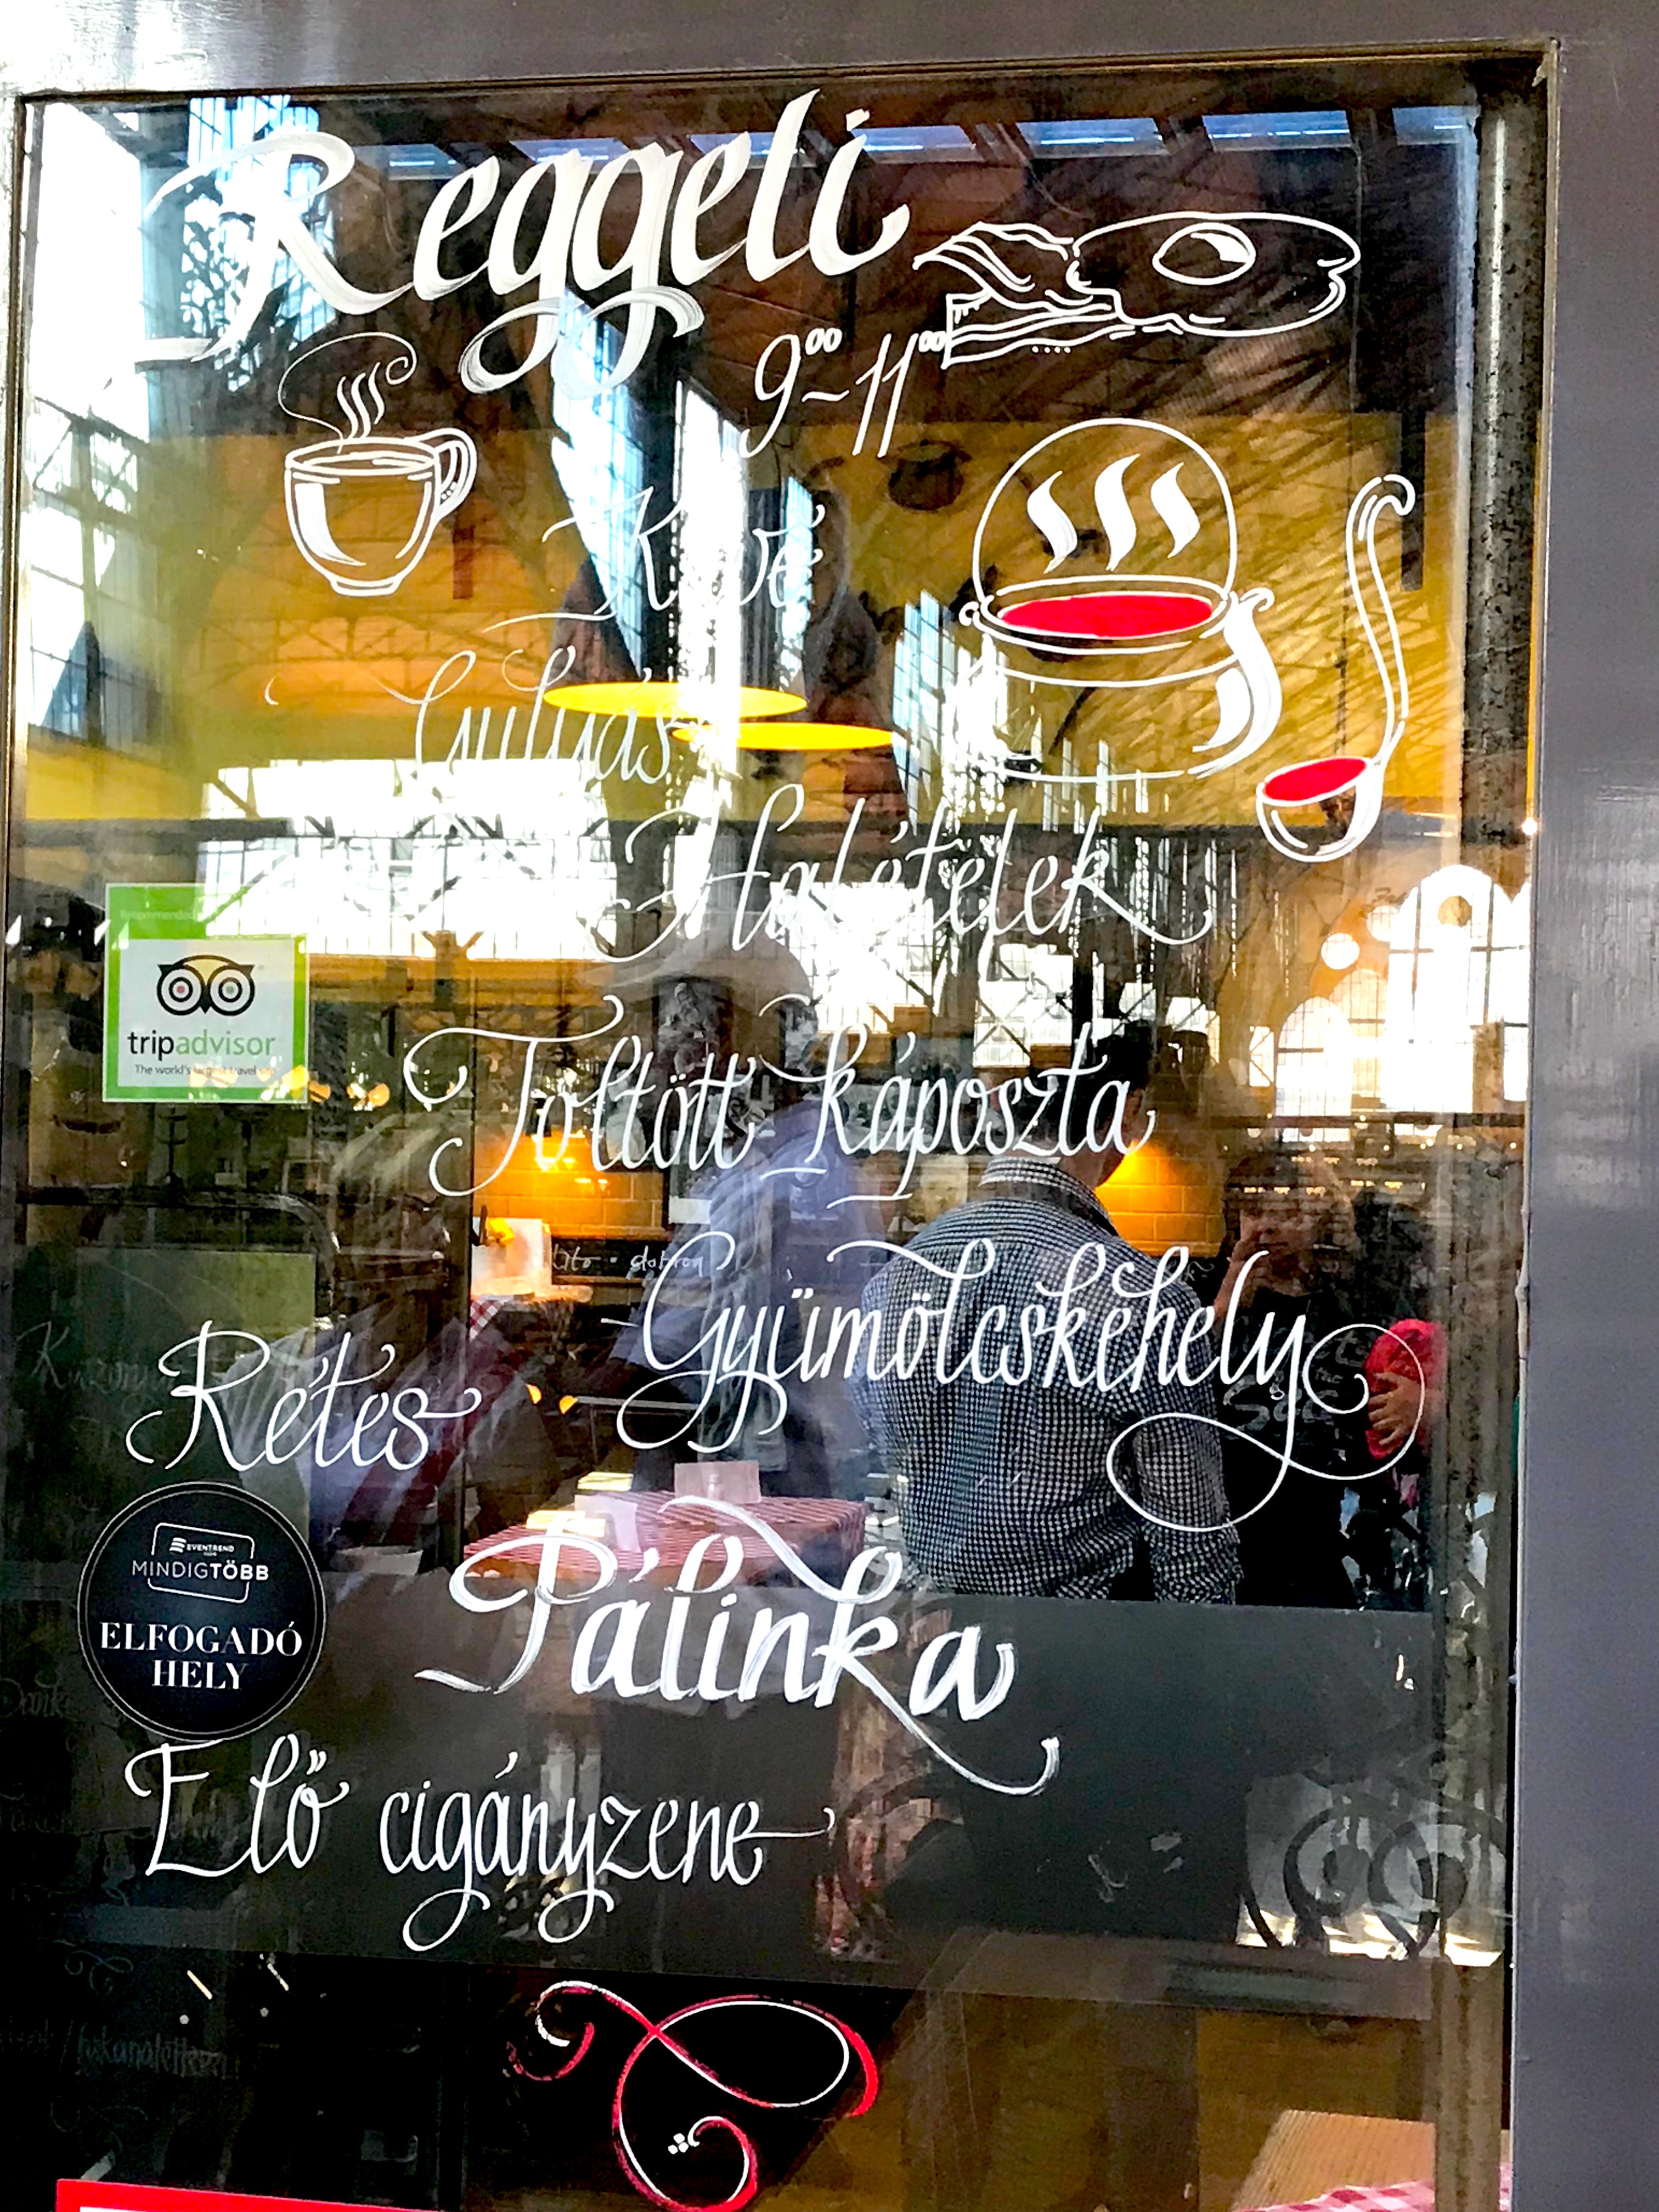 Reggeli
9⁰⁰-11⁰⁰
Kávé
Gulyás
Halételek
Recommended
tripadvisor
The world's largest travel site
Töltött káposzta
Gyümölcskehely
Rétes
EVENTREND
MINDIGTÖBB
ELFOGADÓ
HELY
Pálinka
Élő cigányzene